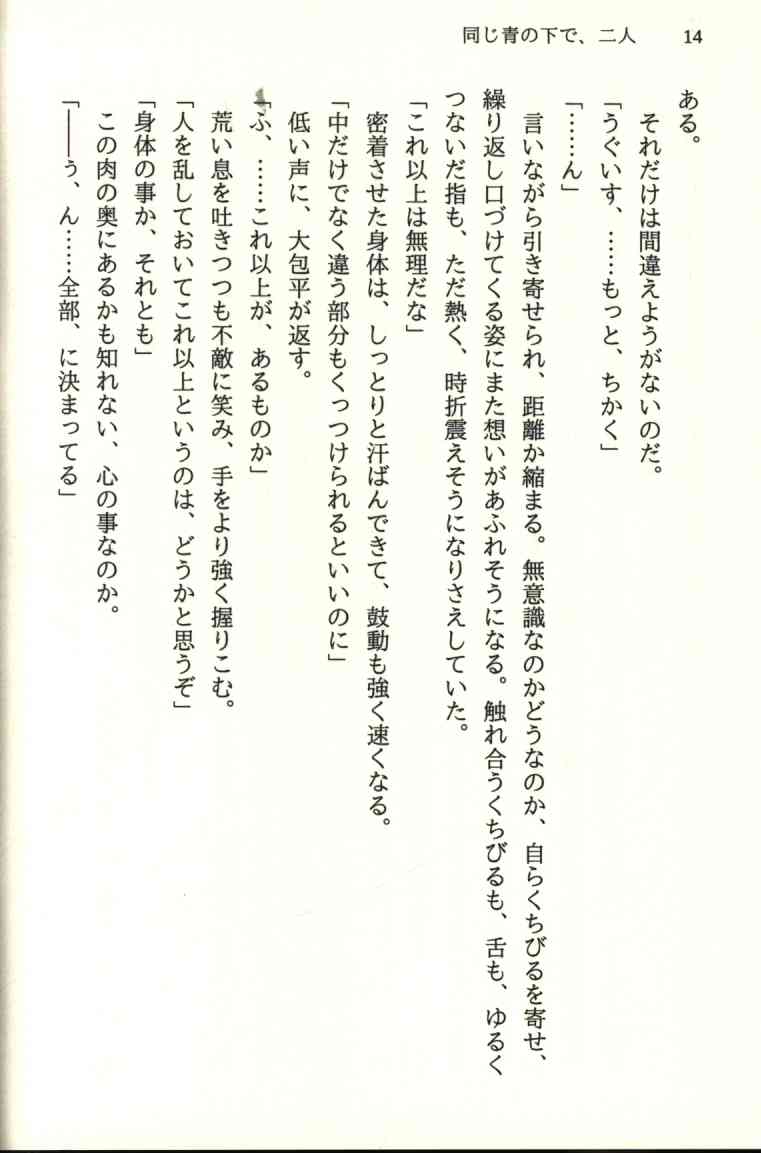 同じ青の下で、二人 14
ある。
それだけは間違えようがないのだ。
「うぐいす、……もっと、ちかく」
「……ん」
言いながら引き寄せられ、距離か縮まる。無意識なのかどうなのか、自らくちびるを寄せ、
繰り返し口づけてくる姿にまた想いがあふれそうになる。触れ合うくちびるも、舌も、ゆるく
つないだ指も、ただ熱く、時折震えそうになりさえしていた。
「これ以上は無理だな」
密着させた身体は、しっとりと汗ばんできて、鼓動も強く速くなる。
「中だけでなく違う部分もくっつけられるといいのに」
低い声に、大包平が返す。
「ふ、……これ以上が、あるものか」
荒い息を吐きつつも不敵に笑み、手をより強く握りこむ。
「人を乱しておいてこれ以上というのは、どうかと思うぞ」
「身体の事か、それとも」
この肉の奥にあるかも知れない、心の事なのか。
「――う、ん……全部、に決まってる」